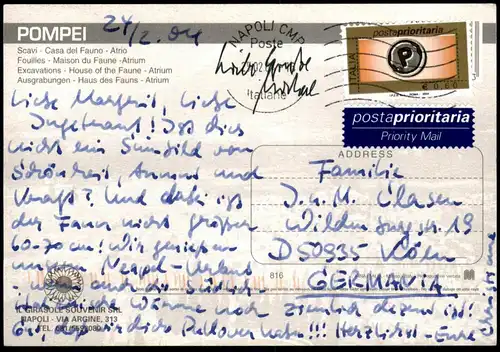 24/2.04
POMPEI
Scavi - Casa del Fauno - Atrio
Fouilles - Maison du Faune - Atrium
Excavations - House of the Faune - Atrium
Ausgrabungen - Haus des Fauns - Atrium
Liebe Margrit, liebe
Ingetraud! Ist dies
nicht ein Sinnbild von
Schönheit, Anmut und
Kraft? Und dabei ist
der Faun nicht größer
60-70 cm! Wir genießen
unseren Neapel-Urlaub
wenn auch die südlich-
Wärme noch ziemlich dezent ist!
die Pullover Herzlichst - Eure
Liebe Grüße
NAPOLI CMP
Poste
Italiane
postaprioritaria
P
ITALIA
€ 0,60
postaprioritaria
Priority Mail
ADDRESS
Familie
J. u. M. Clasen
19
D 50935 Köln
GERMANIA
816
IL GIRASOLE SOUVENIR SRL
NAPOLI - VIA ARGINE, 313